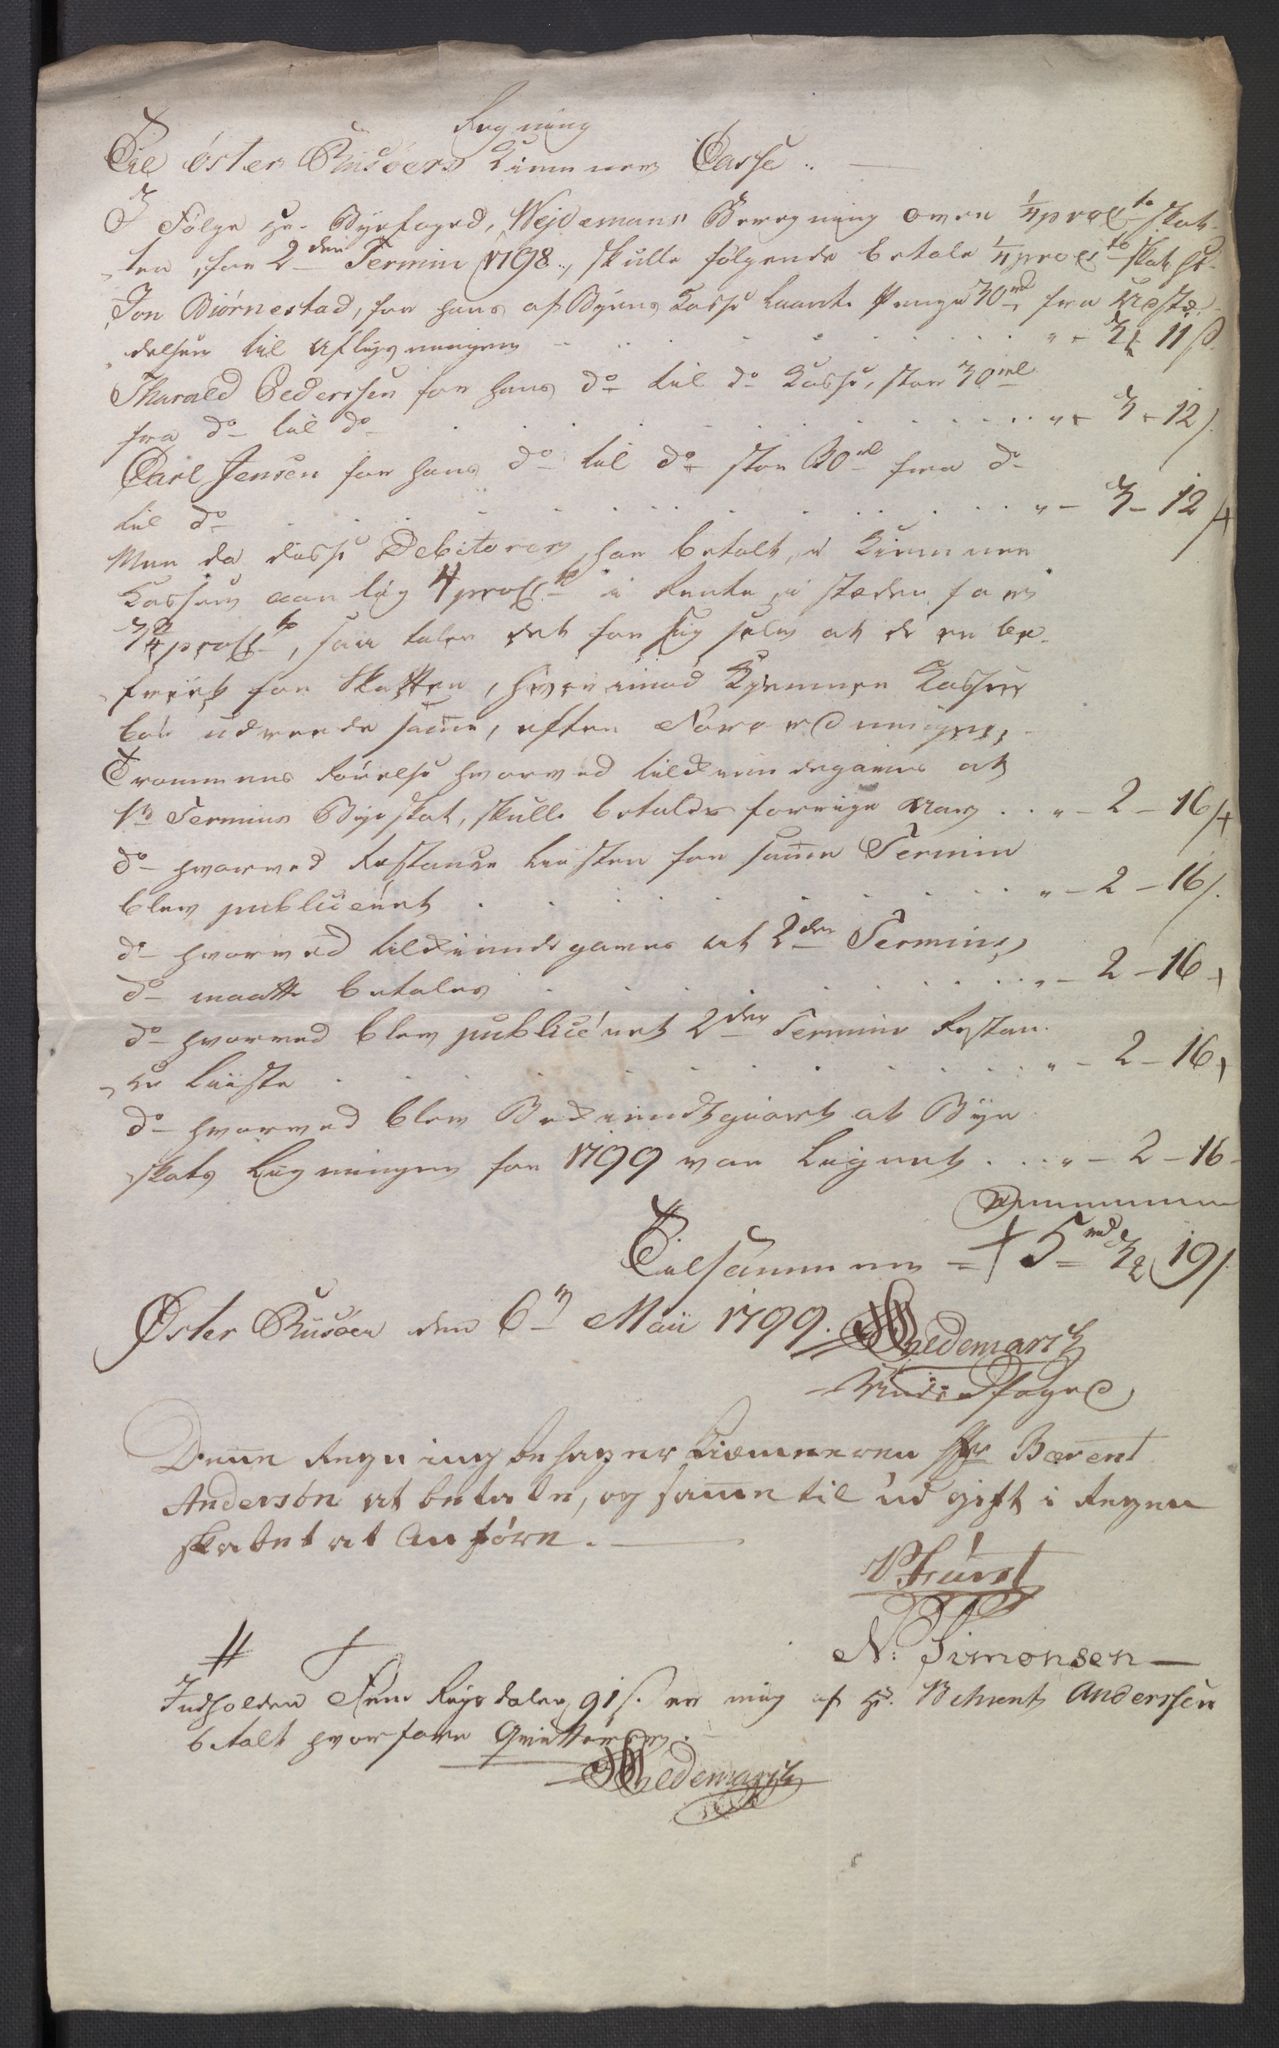 Regning
Til Öster Riisöers Kiemner Casse.
I Følge Hr. Byefoged, Wejdemans Beregning over ¼ proCto Skat-
ten, for 2den Termin 1798, skulle følgende betale ¼ proCto Skat Hr.
Jon Biørnestad, for hans af Byens Kasse laante Penge 30rd, fra Udstæ-
delsen til Aflysningen 11 s.
Tharald Pederssen for hans do til do Kasse, stor 30rd
fra do til do " - 3 - 12 s.
Carl Jensen for hans do til do stor fra do
til do " - 3 - 12
Men da disse Debitorer har betalt, i Kiemner
Kassen aarlig 4 proCto i Rente, i stæden for
proCto, saa taler det for sig selv at de er be-
friet for Skatten, hvorimod Kiemner Kassen
bör udreede samme, efter Forordningen,
Trommens Rörelse hvorved tilkiendegaves at
1te Termins Bye skat, skulle betales forrige Aar . . " - 2 - 16
do hvorved Restance Listen for samme Termin
blev publiceret " - 2 - 16 s.
do hvorved tilkiendegaves at 2den Termins
do maatte betales " - 2 - 16
do hvorved blev publiceret 2den Termins Restan-
ce Liiste " - 2 - 16
do hvorved blev Bekiendtgiort at Bye
skats Ligningen for 1799 var Lignet . . . " - 2 - 16
Tilsammen = 5rd 19 s
Öster Riisöer den 6te Maii 1799. Hedemarck
Underfoged
Denne Regning behager Kiæmneren Hr Bærent
Andersøn at betale, og samme til udgift i Regen
skabet at Anføre.
P Fürst
N: Simonsen
Indholden Fem Rigsdaler, 91 s. er mig af Hr. Behrent Anderssen
betalt hvorfore Qvitteres.
Hedemarck